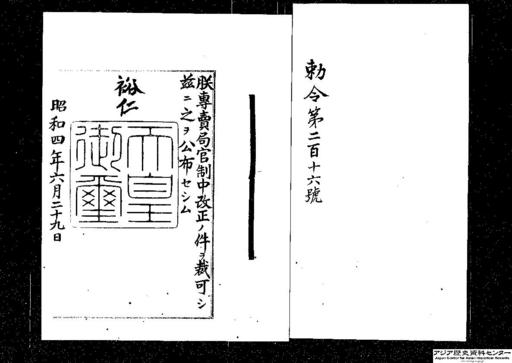 勅令第二百十六號
朕專賣局官制中改正ノ件ヲ裁可シ
茲ニ之ヲ公布セシム
裕仁
天皇
御璽
昭和四年六月二十九日
アジア歴史資料センター
Japan Center for Asian Historical Records